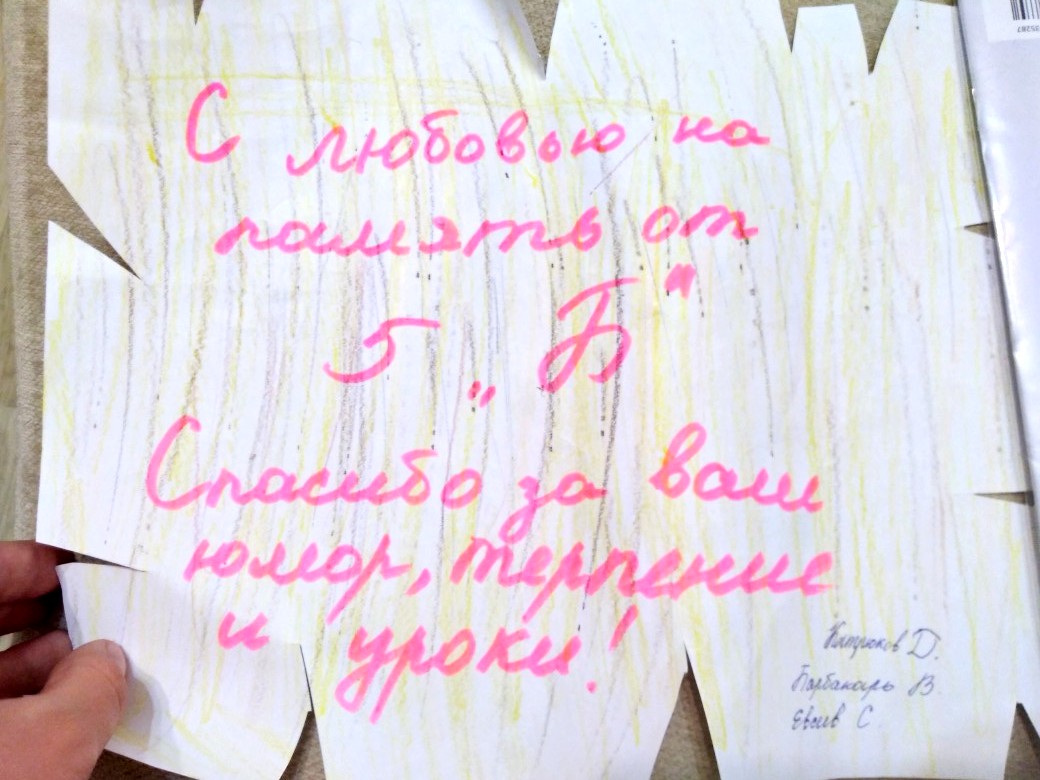 С любовью на
память от
5 „Б"
Спасибо за ваш
юмор, терпение
и уроки!
Катрюков Д.
Барбакарь В.
Евсив С.